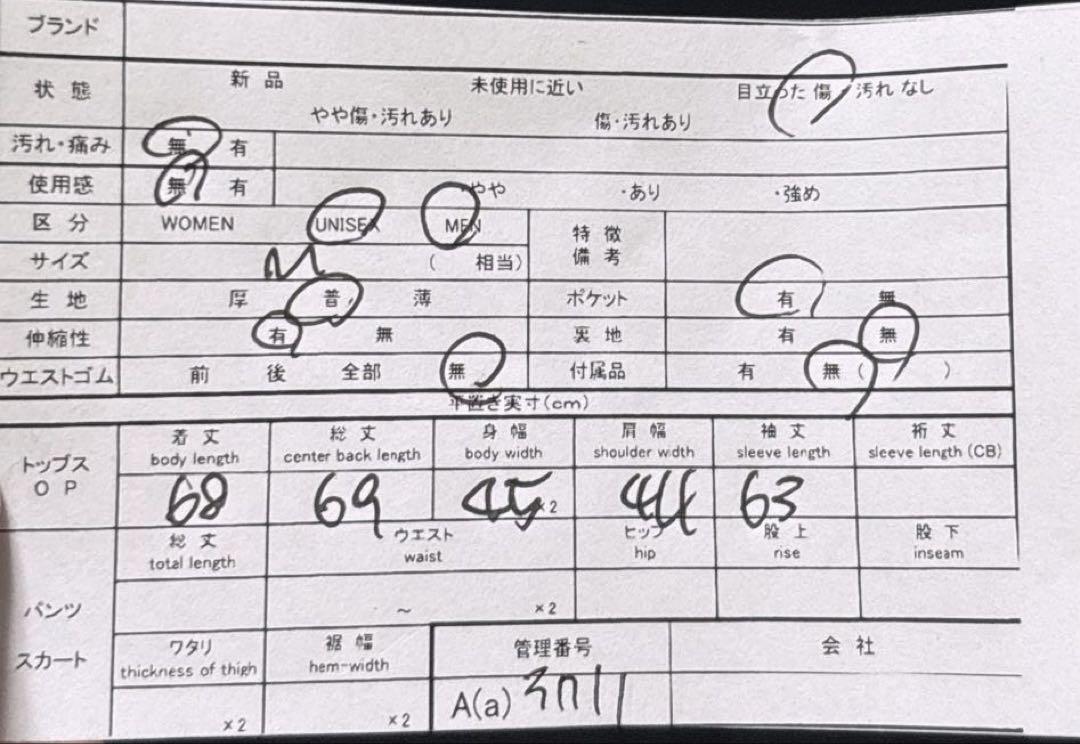 ブランド
状態 新品 未使用に近い 目立った傷・汚れなし
やや傷・汚れあり 傷・汚れあり
汚れ・痛み 無 有
使用感 無 有 ・やや ・あり ・強め
区分 WOMEN UNISEX MEN 特徴備考
サイズ M ( 相当)
生地 厚 普 薄 ポケット 有 無
伸縮性 有 無 裏地 有 無
ウエストゴム 前 後 全部 無 付属品 有 無 ( )
平置き実寸(cm)
着丈 総丈 身幅 肩幅 袖丈 裄丈
トップス body length center back length body width shoulder width sleeve length sleeve length (CB)
OP 68 69 45×2 44 63
総丈 ウエスト ヒップ 股上 股下
total length waist hip rise inseam
パンツ ～ ×2
スカート ワタリ 裾幅 管理番号 会社
thickness of thigh hem-width
×2 ×2 A(a)